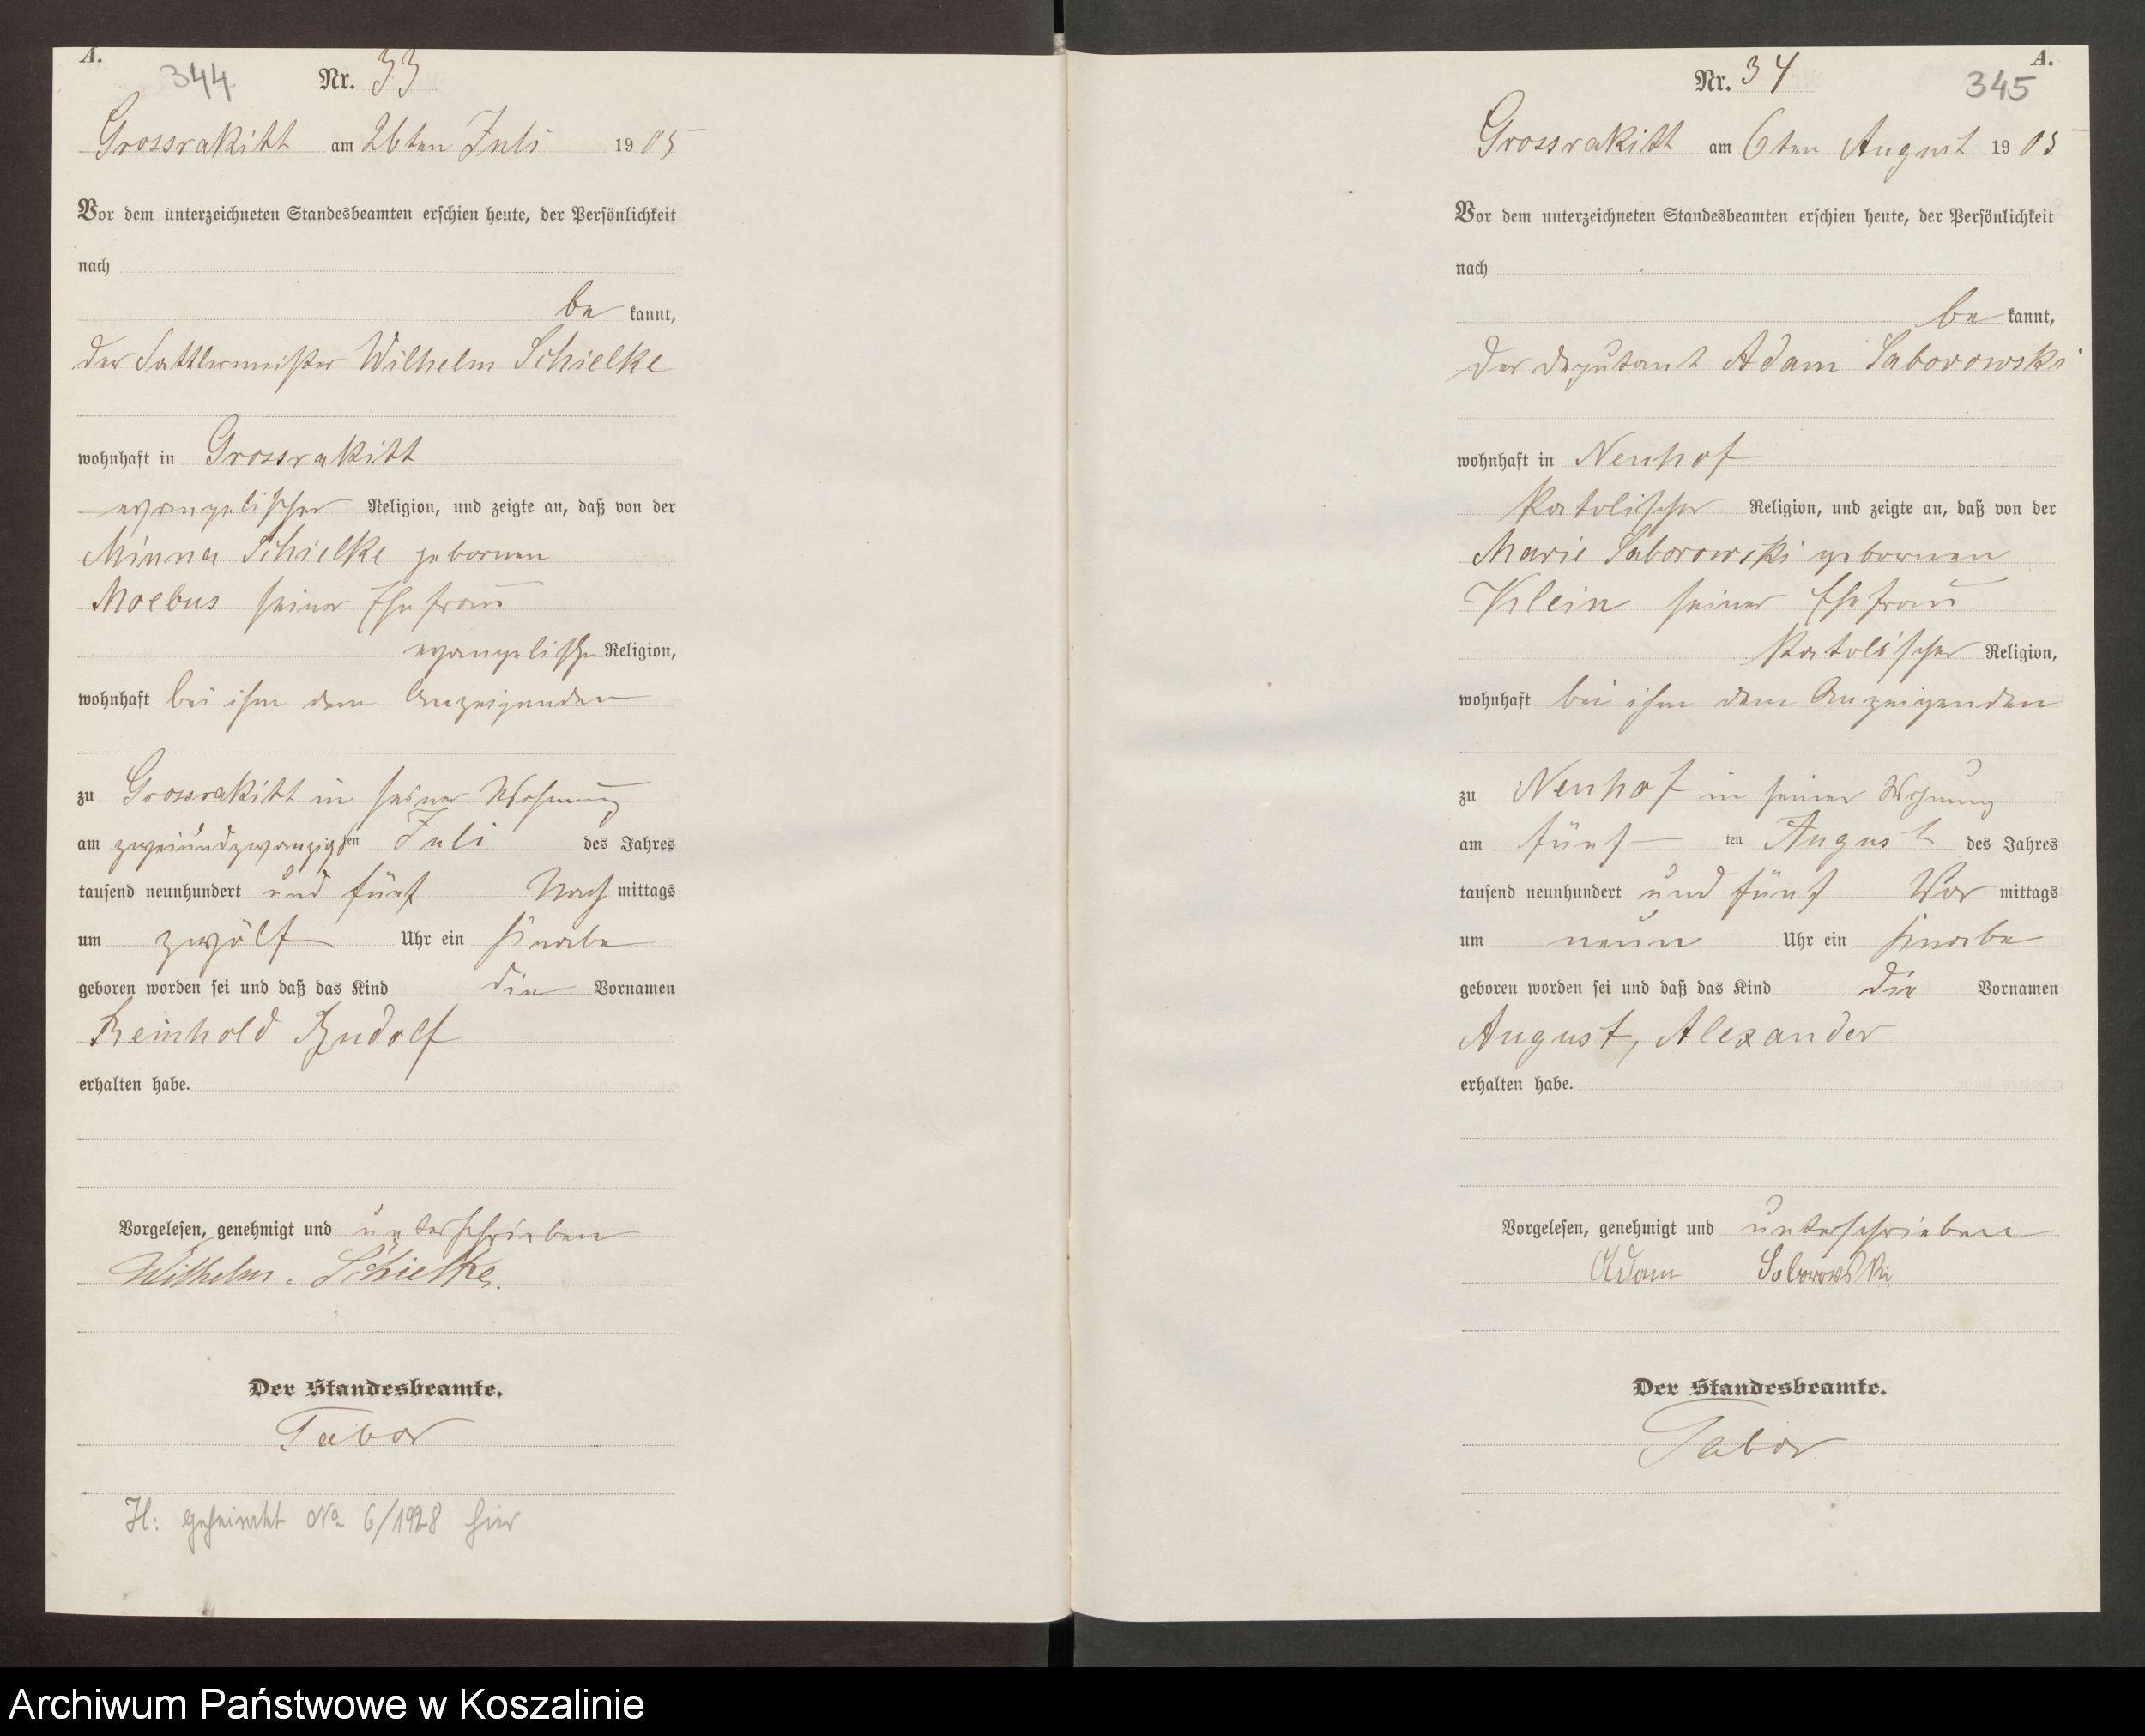 A.
344
Nr. 33
Grossrakitt am 26ten Juli 1905
Vor dem unterzeichneten Standesbeamten erschien heute, der Persönlichkeit
nach
be kannt,
der Sattlermeister Wilhelm Schielke
wohnhaft in Grossrakitt
evangelischer Religion, und zeigte an, daß von der
Minna Schielke gebornen
Moebus seiner Ehefrau
evangelischer Religion,
wohnhaft bei ihm dem Anzeigenden
zu Grossrakitt in seiner Wohnung
am zweiundzwanzigsten Juli des Jahres
tausend neunhundert und fünf Nach mittags
um zwölf Uhr ein Knabe
geboren worden sei und daß das Kind die Vornamen
Reinhold Rudolf
erhalten habe.
Vorgelesen, genehmigt und unterschrieben
Wilhelm. Schielke.
Der Standesbeamte.
Tabor
H: geheiratet No 6/1928 hier
A.
345
Nr. 34
Grossrakitt am 6ten August 1905
Vor dem unterzeichneten Standesbeamten erschien heute, der Persönlichkeit
nach
be kannt,
der Deputant Adam Saborowski
wohnhaft in Neuhof
katolischer Religion, und zeigte an, daß von der
Marie Saborowski gebornen
Klein seiner Ehefrau
katolischer Religion,
wohnhaft bei ihm dem Anzeigenden
zu Neuhof in seiner Wohnung
am fünf ten August des Jahres
tausend neunhundert und fünf Vor mittags
um neun Uhr ein Knabe
geboren worden sei und daß das Kind die Vornamen
August, Alexander
erhalten habe.
Vorgelesen, genehmigt und unterschrieben
Adam Saborowski
Der Standesbeamte.
Tabor
Archiwum Państwowe w Koszalinie